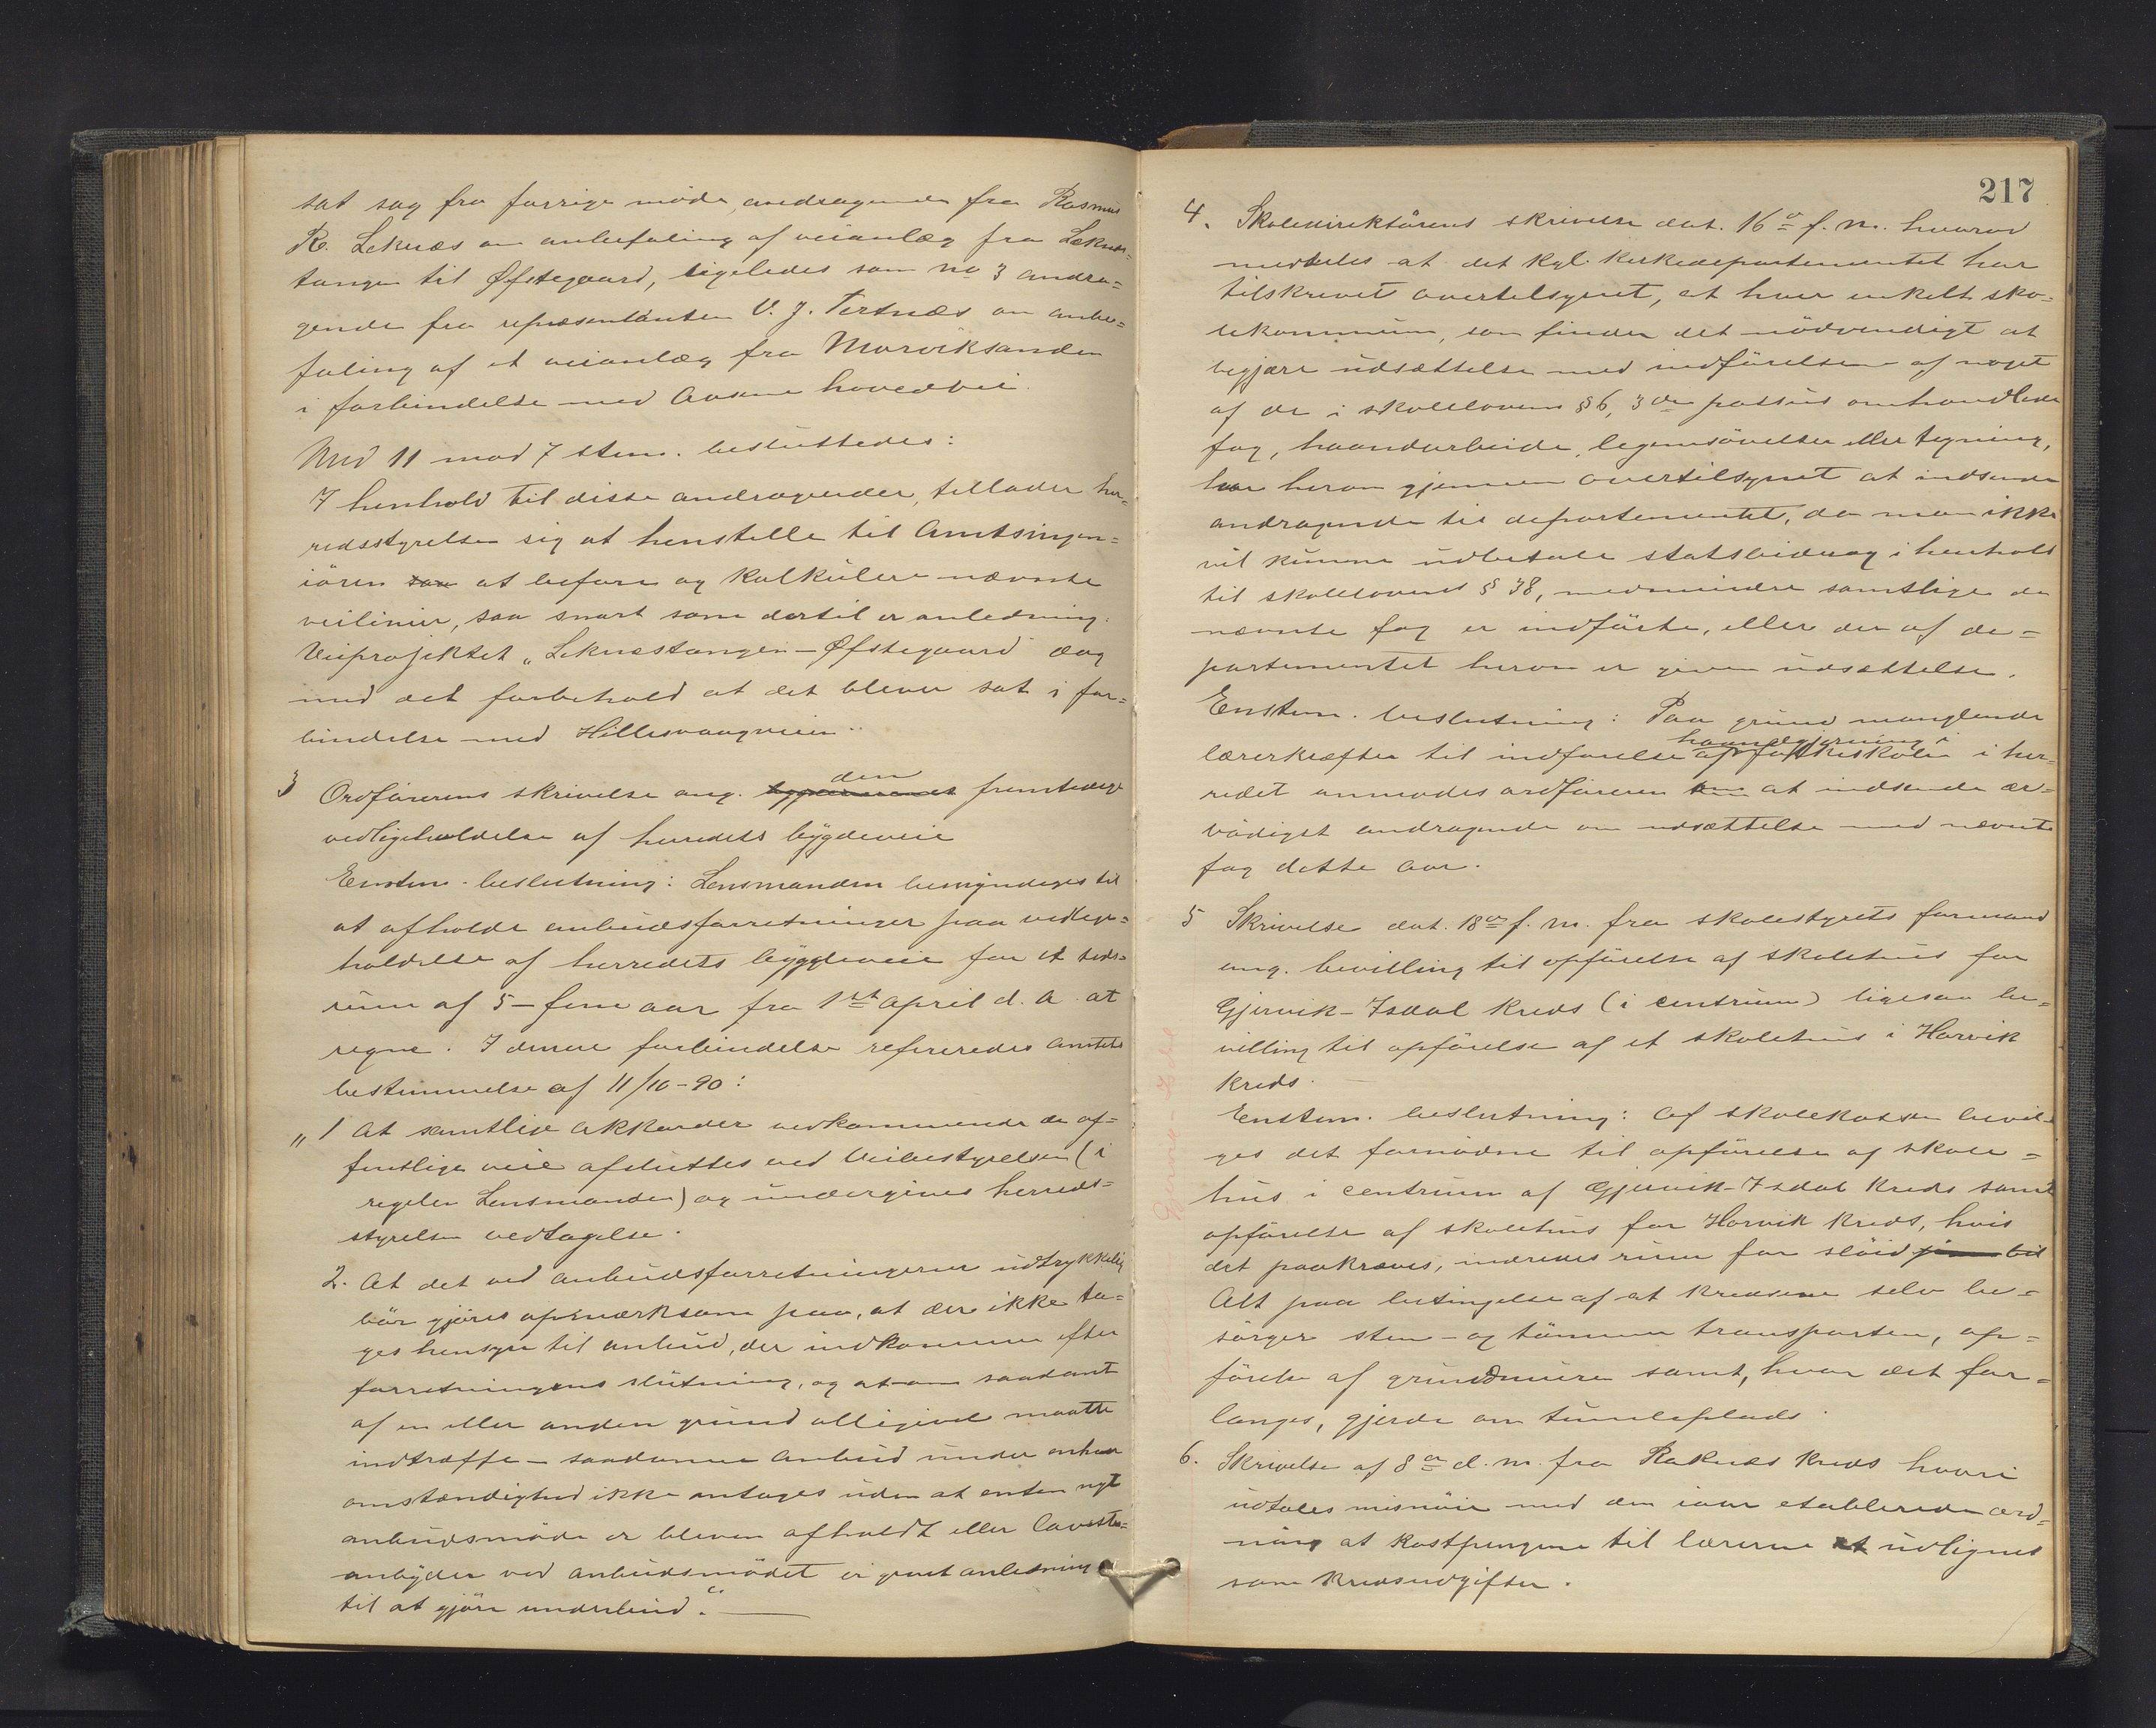 sat sag fra forrige møde, andragende fra Rasmus
R. Leknæs om anbefaling af veianlæg fra Leknæs=
tangen til Øfstegaard, ligeledes som no 3 andra=
gende fra repræsentanten V. J. Tertnæs om anbe=
faling af et veianlæg fra Morviksanden
i forbindelse med Aasane hovedvei.
Med 11 mod 7 stem. besluttedes:
I henhold til disse andragender, tillader her=
redsstyrelsen sig at henstille til Amtsingen=
iøren saa at befare og kalkulere nævnte
veilinier, saa snart som dertil er anledning.
Veiprojektet „Leknæstangen – Øfstegaard dog
med det forbehold at det bliver sat i for=
bindelse med Hillesvaagveien.
3 Ordførerens skrivelse ang. den fremtidige
vedligeholdelse af herredets bygdeveie
Enstem. beslutning: Lensmanden bemyndiges til
at afholde anbudsforretninger paa vedlige=
holdelse af herredets bygdeveie for et tids=
rum af 5 – fem aar fra 1st april d. A. at
regne. I denne forbindelse refereredes Amtets
bestemmelse af 11/10 - 90:
„ 1 At samtlige akkorder vedkommende de of=
fentlige veie afsluttes ved Veibestyrelsen (i
regelen Lensmanden) og undergives herreds=
styrelsen vedtagelse.
2. At det ved anbudsforretningerne udtrykkelig
bør gjøres opmærksom paa, at der ikke ta=
ges hensyn til anbud, der indkommer efter
forretningens slutning, og at om saadant
af en eller anden grund alligevel maatte
indtræffe – saadanne anbud under enhver
omstændighed ikke antages uden at enten nyt
anbudsmøde er bleven afholdt eller lavest=
anbyder ved anbudsmødet er givet anledning
til at gjøre underbud.“
217
4. Skoledirektørens skrivelse dat. 16de f. m. hvorved
meddeles at det kgl. kirkedepartementet har
tilskrevet overtilsynet, at hver enkelt sko=
lekommune, som finder det nødvendigt at
begjære udsættelse med indførelsen af noget
af de i skolelovens § 6, 3die passus omhandlede
fag, haandarbeide, legemsøvelser eller tegning,
har herom gjennem overtilsynet at indsende
andragende til departementet, da man ikke
vil kunne udbetale statsbidrag i henhold
til skolelovens § 38, medmindre samtlige de
nævnte fag er indførte, eller der af de=
partementet herom er given udsættelse.
Enstem. beslutning: Paa grund manglende
lærerkræfter til indførelse af haandgjerning i folkeskolen i her=
redet anmodes ordføreren om at indsende ær=
bødigst andragende om udsættelse med nævnte
fag dette aar.
5 Skrivelse dat. 18de f. m. fra skolestyrets formand
ang. bevilling til opførelse af skolehus for
Gjervik – Isdal kreds (i centrum) ligesaa be=
villing til opførelse af et skolehus i Horvik
kreds.
Enstem. beslutning: Af skolekassen bevil=
ges det fornødne til opførelse af skole=
hus i centrum af Gjervik – Isdal kreds samt
opførelse af skolehus for Horvik kreds, hvis
det paakræves, indredes rum for sløid
Alt paa betingelse af at kredsene selv be=
sørger sten- og tømmer transporten, op=
førelse af grundmure samt, hvor det for=
langes, gjerde om tumleplads.
6. Skrivelse af 8de d. m. fra Raknæs kreds hvori
udtales misnøie med den iaar etablerede ord=
ning at kostpengene til lærerne udlignes
som kredsudgifter.